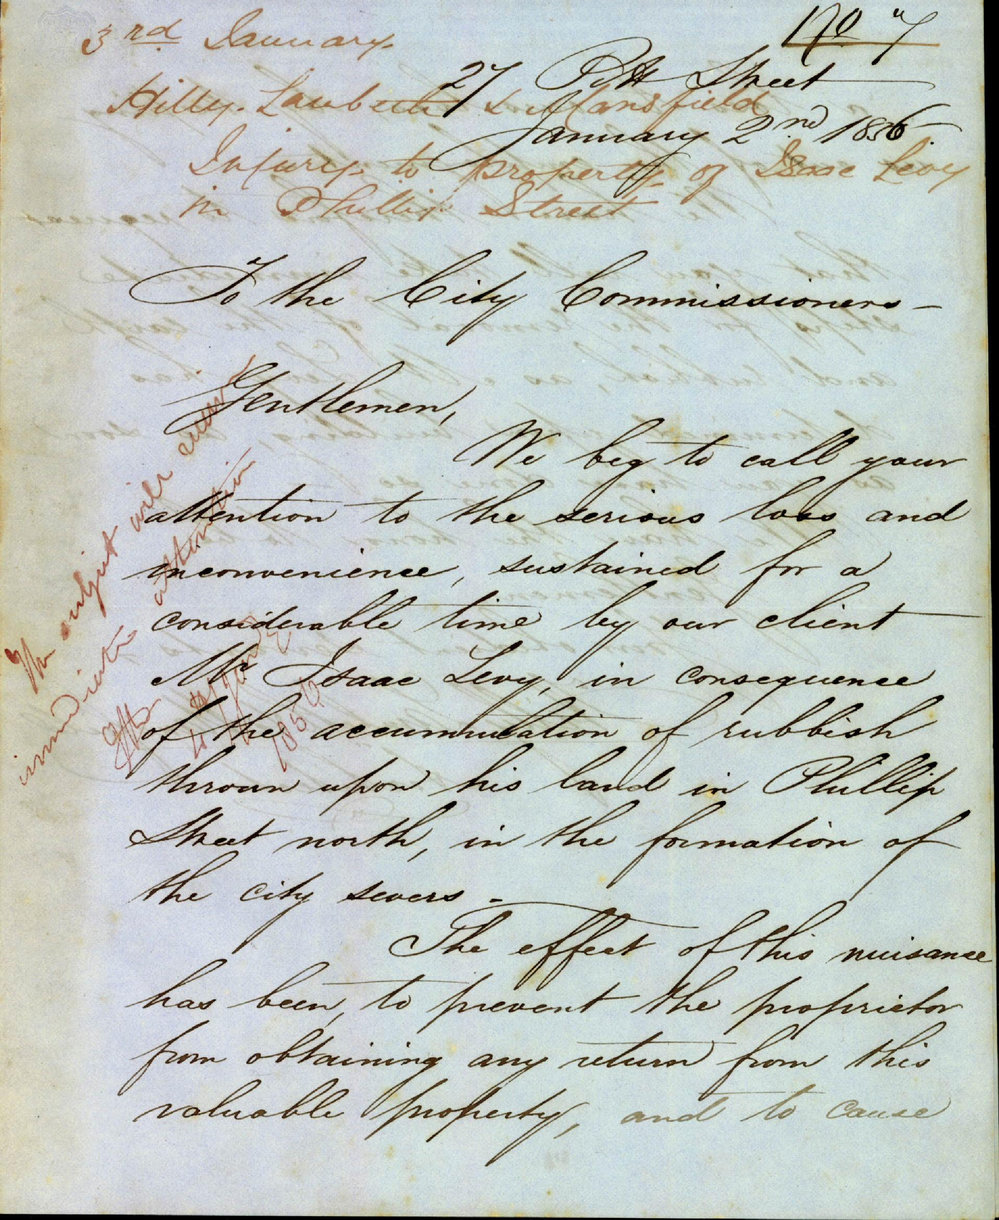 3rd January.
170 "7
27 Pitt Street
Hilly. Lambeth & Mansfield
January 2nd 1856.
Injury to property of Isaac Levy
in Phillip Street
To the City Commissioners –
Gentlemen,
We beg to call your
attention to the serious loss and
inconvenience, sustained for a
considerable time by our client
Mr Isaac Levy, in consequence
of the accumulation of rubbish
thrown upon his land in Phillip
Street north, in the formation of
the city sewers –
The effect of this nuisance
has been, to prevent the proprietor
from obtaining any return from this
valuable property, and to cause
The subject will receive
immediate attention
4 Jany
1856